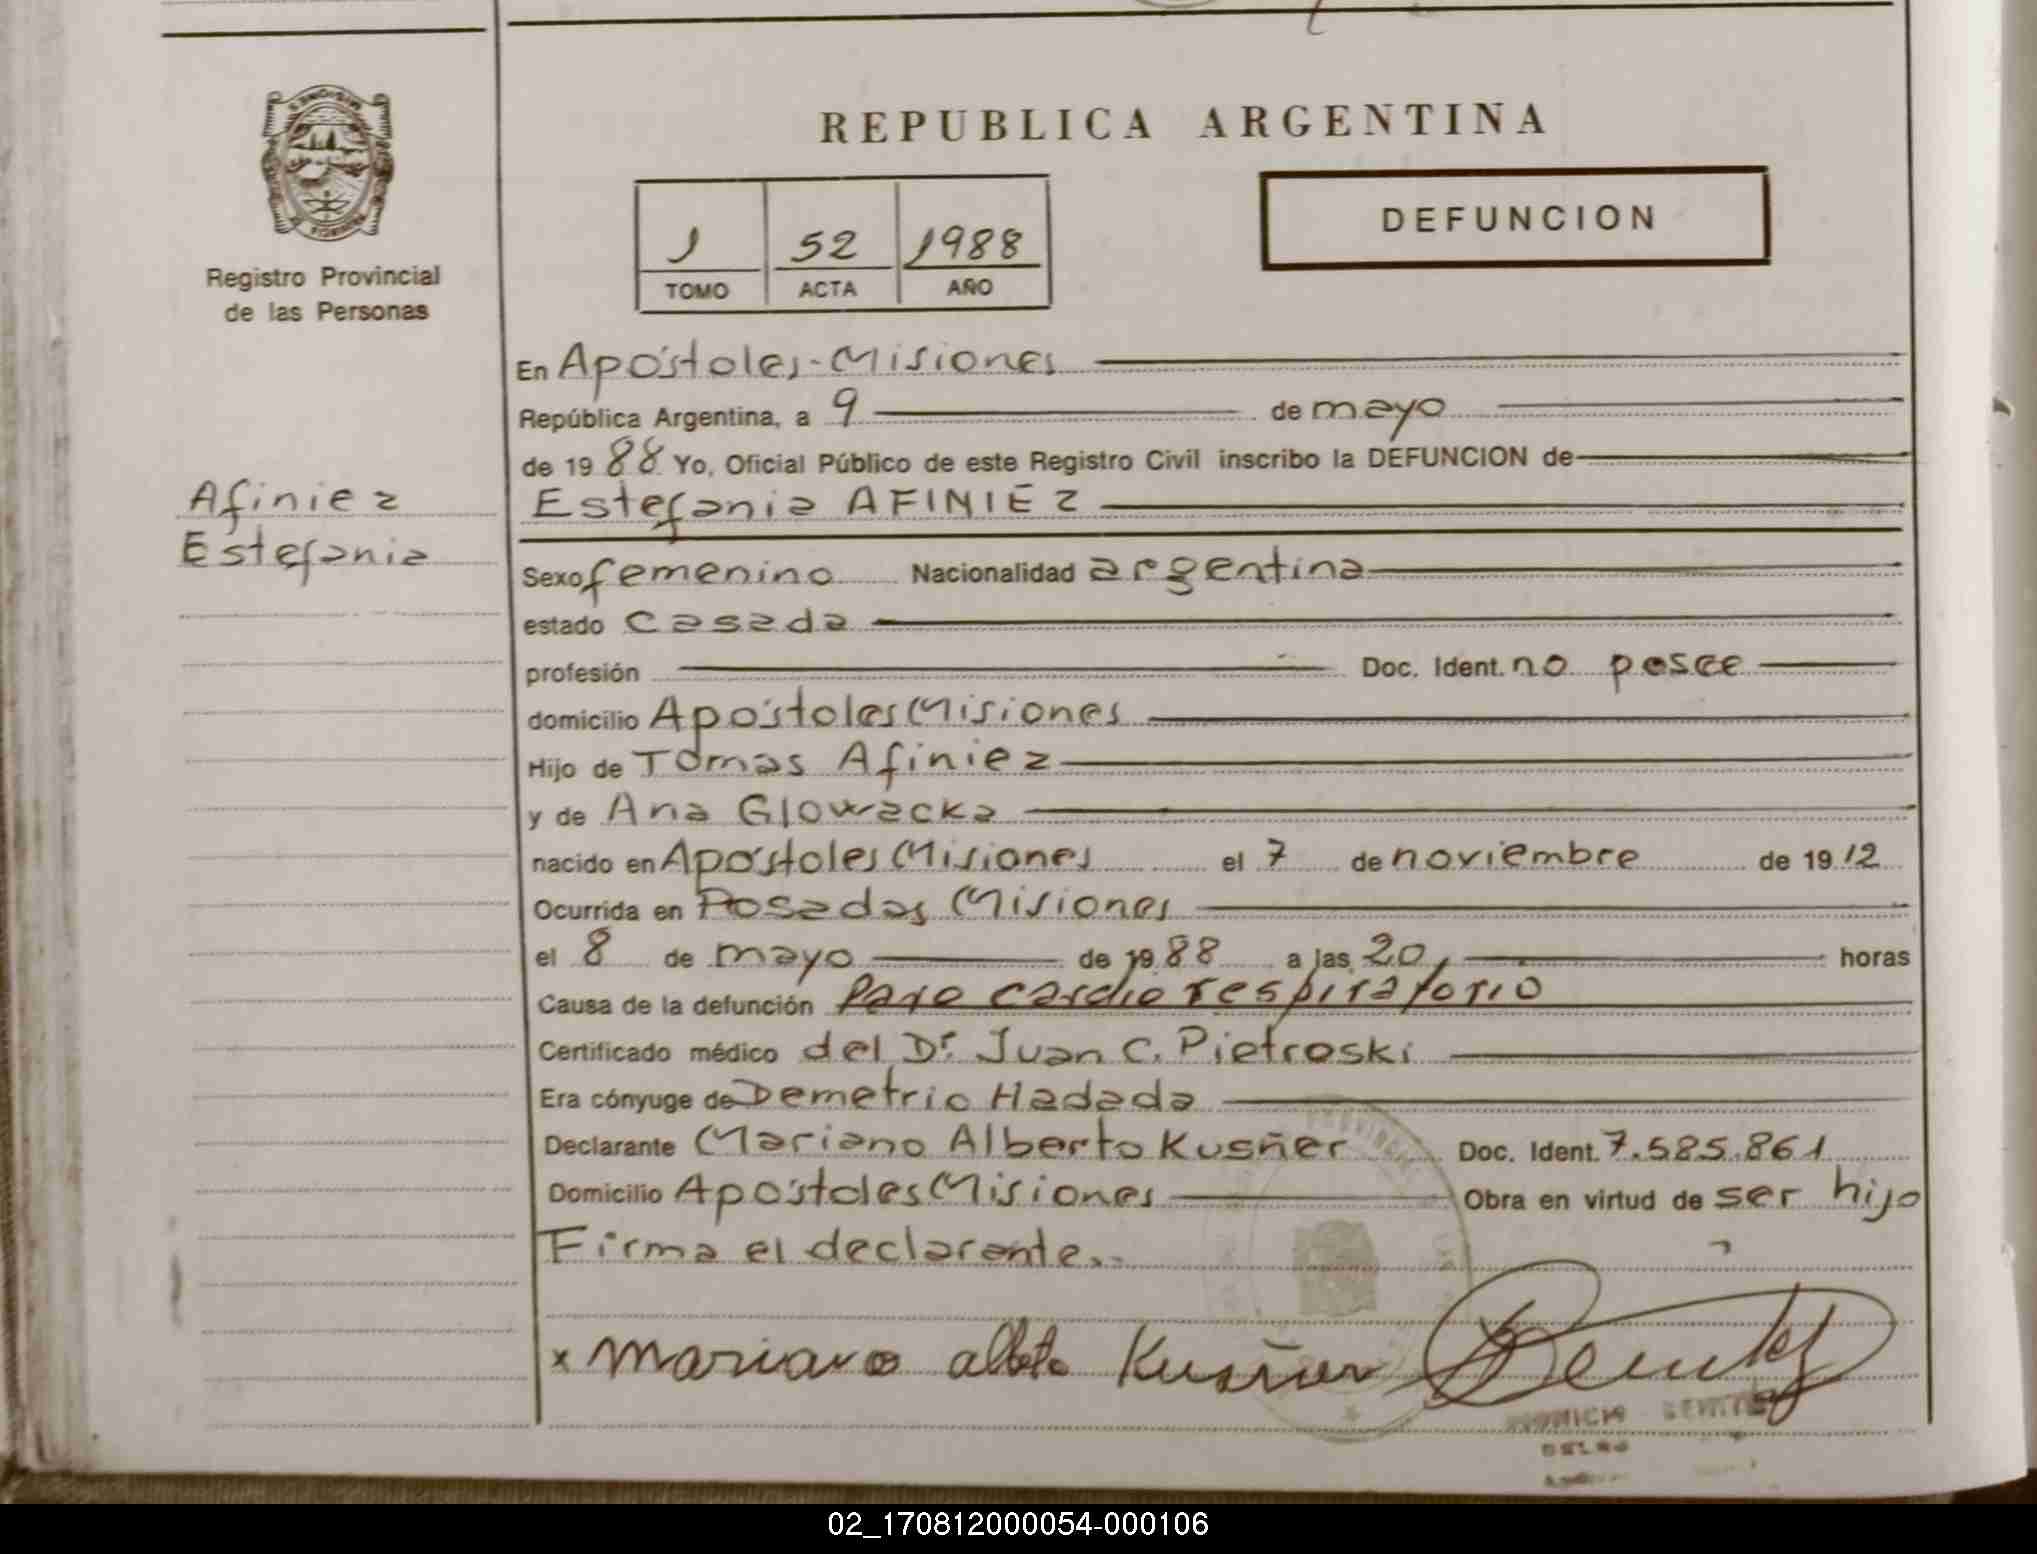 REPUBLICA ARGENTINA
Registro Provincial
de las Personas
1 52 1988
TOMO ACTA AÑO
DEFUNCION
En Apóstoles - Misiones
República Argentina, a 9 de mayo
de 1988 Yo, Oficial Público de este Registro Civil inscribo la DEFUNCION de
Afiniez
Estefania
Estefania AFINIEZ
Sexo femenino Nacionalidad argentina
estado casada
profesión Doc. Ident. no posee
domicilio Apóstoles Misiones
Hijo de Tomas Afiniez
y de Ana Glowacka
nacido en Apóstoles Misiones el 7 de noviembre de 1912
Ocurrida en Posadas Misiones
el 8 de mayo de 1988 a las 20, horas
Causa de la defunción Paro cardio respiratorio
Certificado médico del Dr. Juan C. Pietroski
Era cónyuge de Demetrio Hadada
Declarante Mariano Alberto Kusñer Doc. Ident. 7.585.861
Domicilio Apóstoles Misiones Obra en virtud de ser hijo
Firma el declarante.
x Mariano alberto Kusñer
02_170812000054-000106